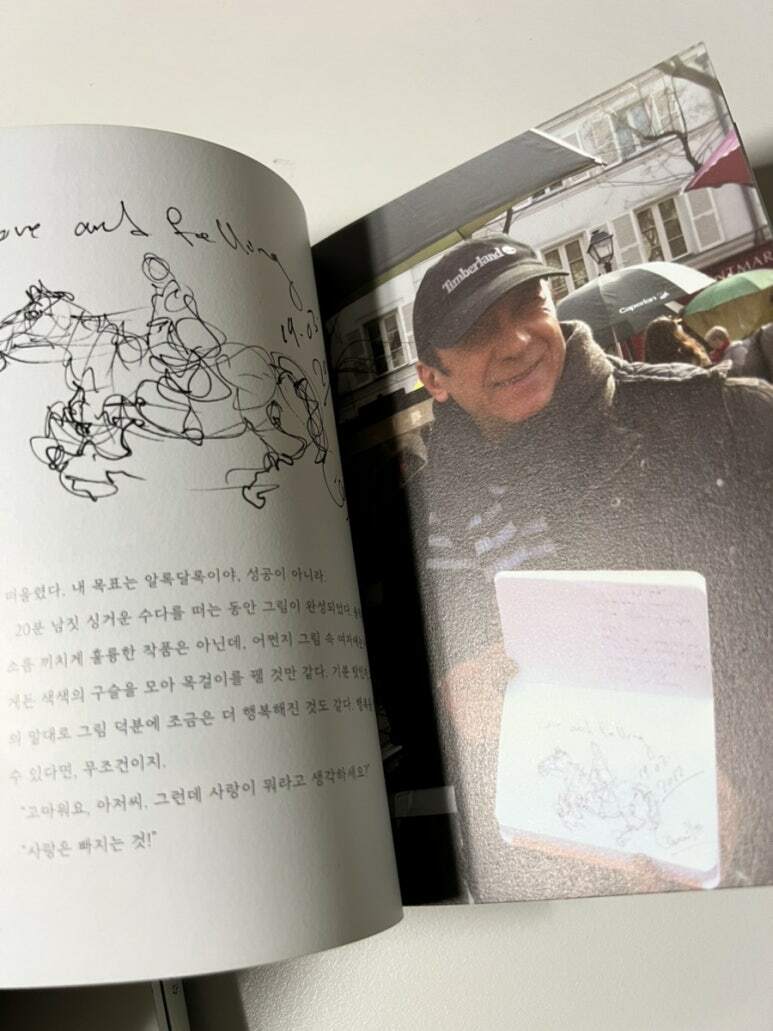 and falling
19.03
떠올렸다. 내 목표는 알록달록이야, 성공이 아니라.
20분 남짓 싱거운 수다를 떠는 동안 그림이 완성되었다.
소름 끼치게 훌륭한 작품은 아닌데, 어쩐지 그림 속
게든 색색의 구슬을 모아 목걸이를 꿸 것만 같다. 기분
의 말대로 그림 덕분에 조금은 더 행복해진 것도 같다.
수 있다면, 무조건이지.
“고마워요, 아저씨. 그런데 사랑이 뭐라고 생각하세요?”
“사랑은 빠지는 것!”
Timberland
Caperlan
NTMAR
and falling
19.03
2012